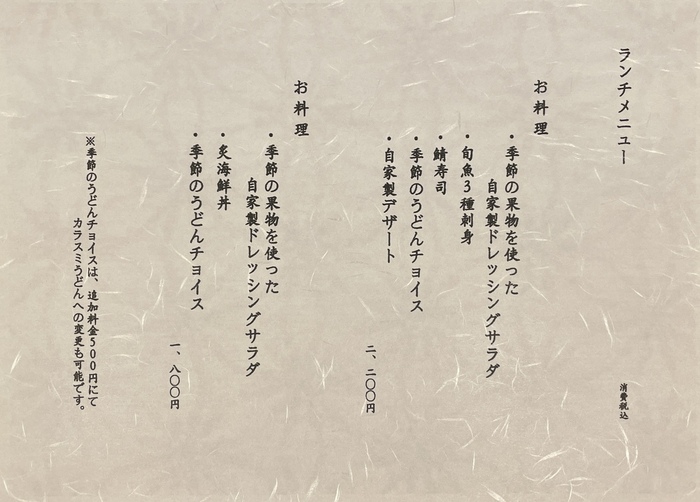 ランチメニュー
消費税込
お料理
・季節の果物を使った
自家製ドレッシングサラダ
・旬魚３種刺身
・鯖寿司
・季節のうどんチョイス
・自家製デザート
二、二〇〇円
お料理
・季節の果物を使った
自家製ドレッシングサラダ
・炙海鮮丼
・季節のうどんチョイス
一、八〇〇円
※季節のうどんチョイスは、追加料金５００円にて
カラスミうどんへの変更も可能です。